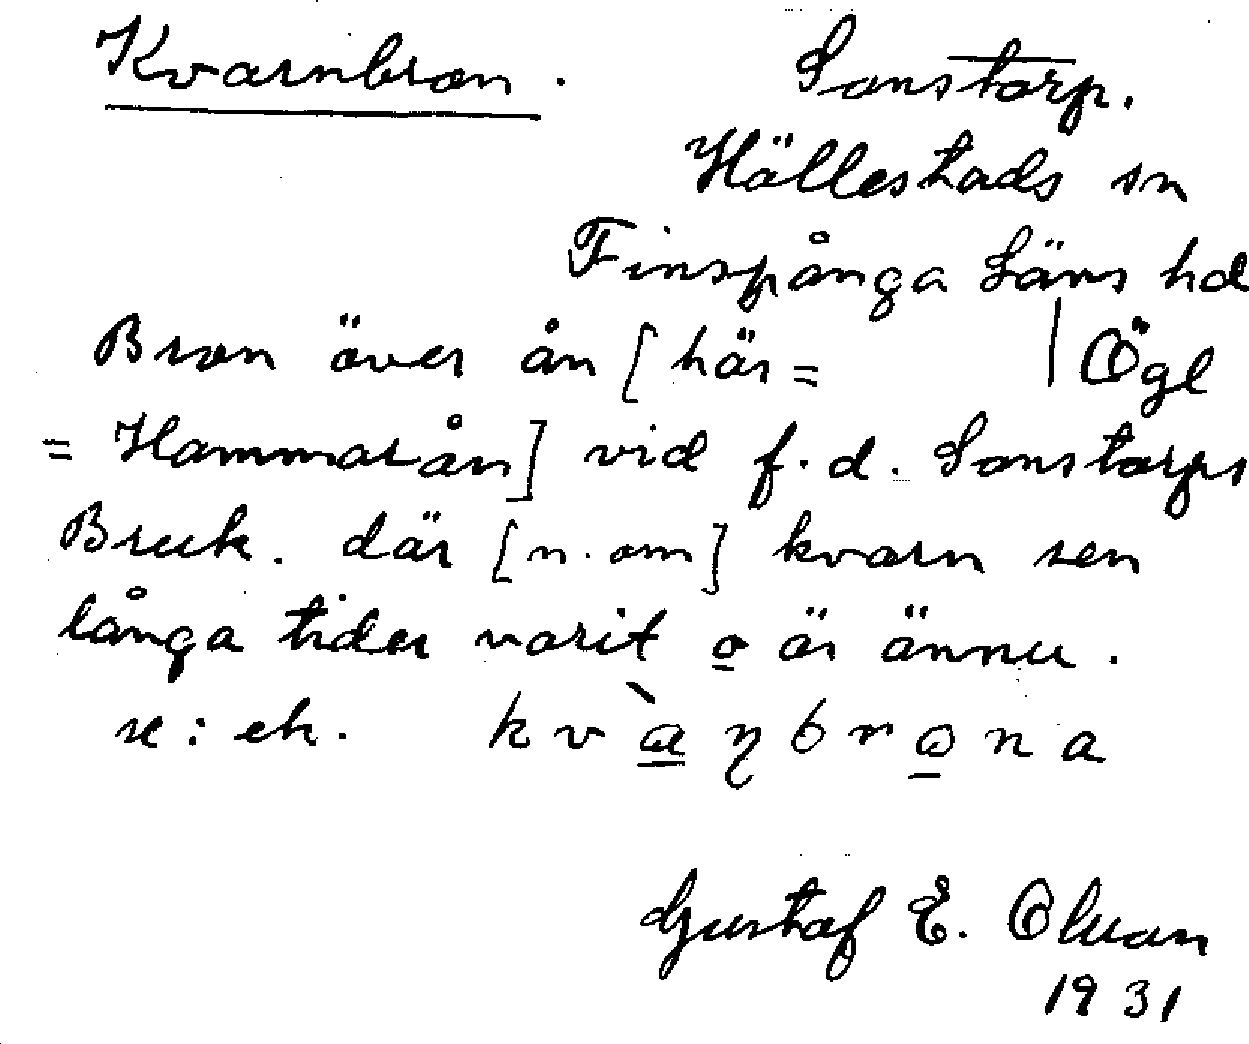 Kvarnbron. Sonstorp.
Hällestads sn
Finspånga Läns hd
Bron över ån [här= | Ögl
= Hammarån] vid f.d. Sonstorps
Bruk. där [n. om] kvarn sen
långa tider varit o är ännu.
se: ek. kv
Gustaf E. Olsson
1931